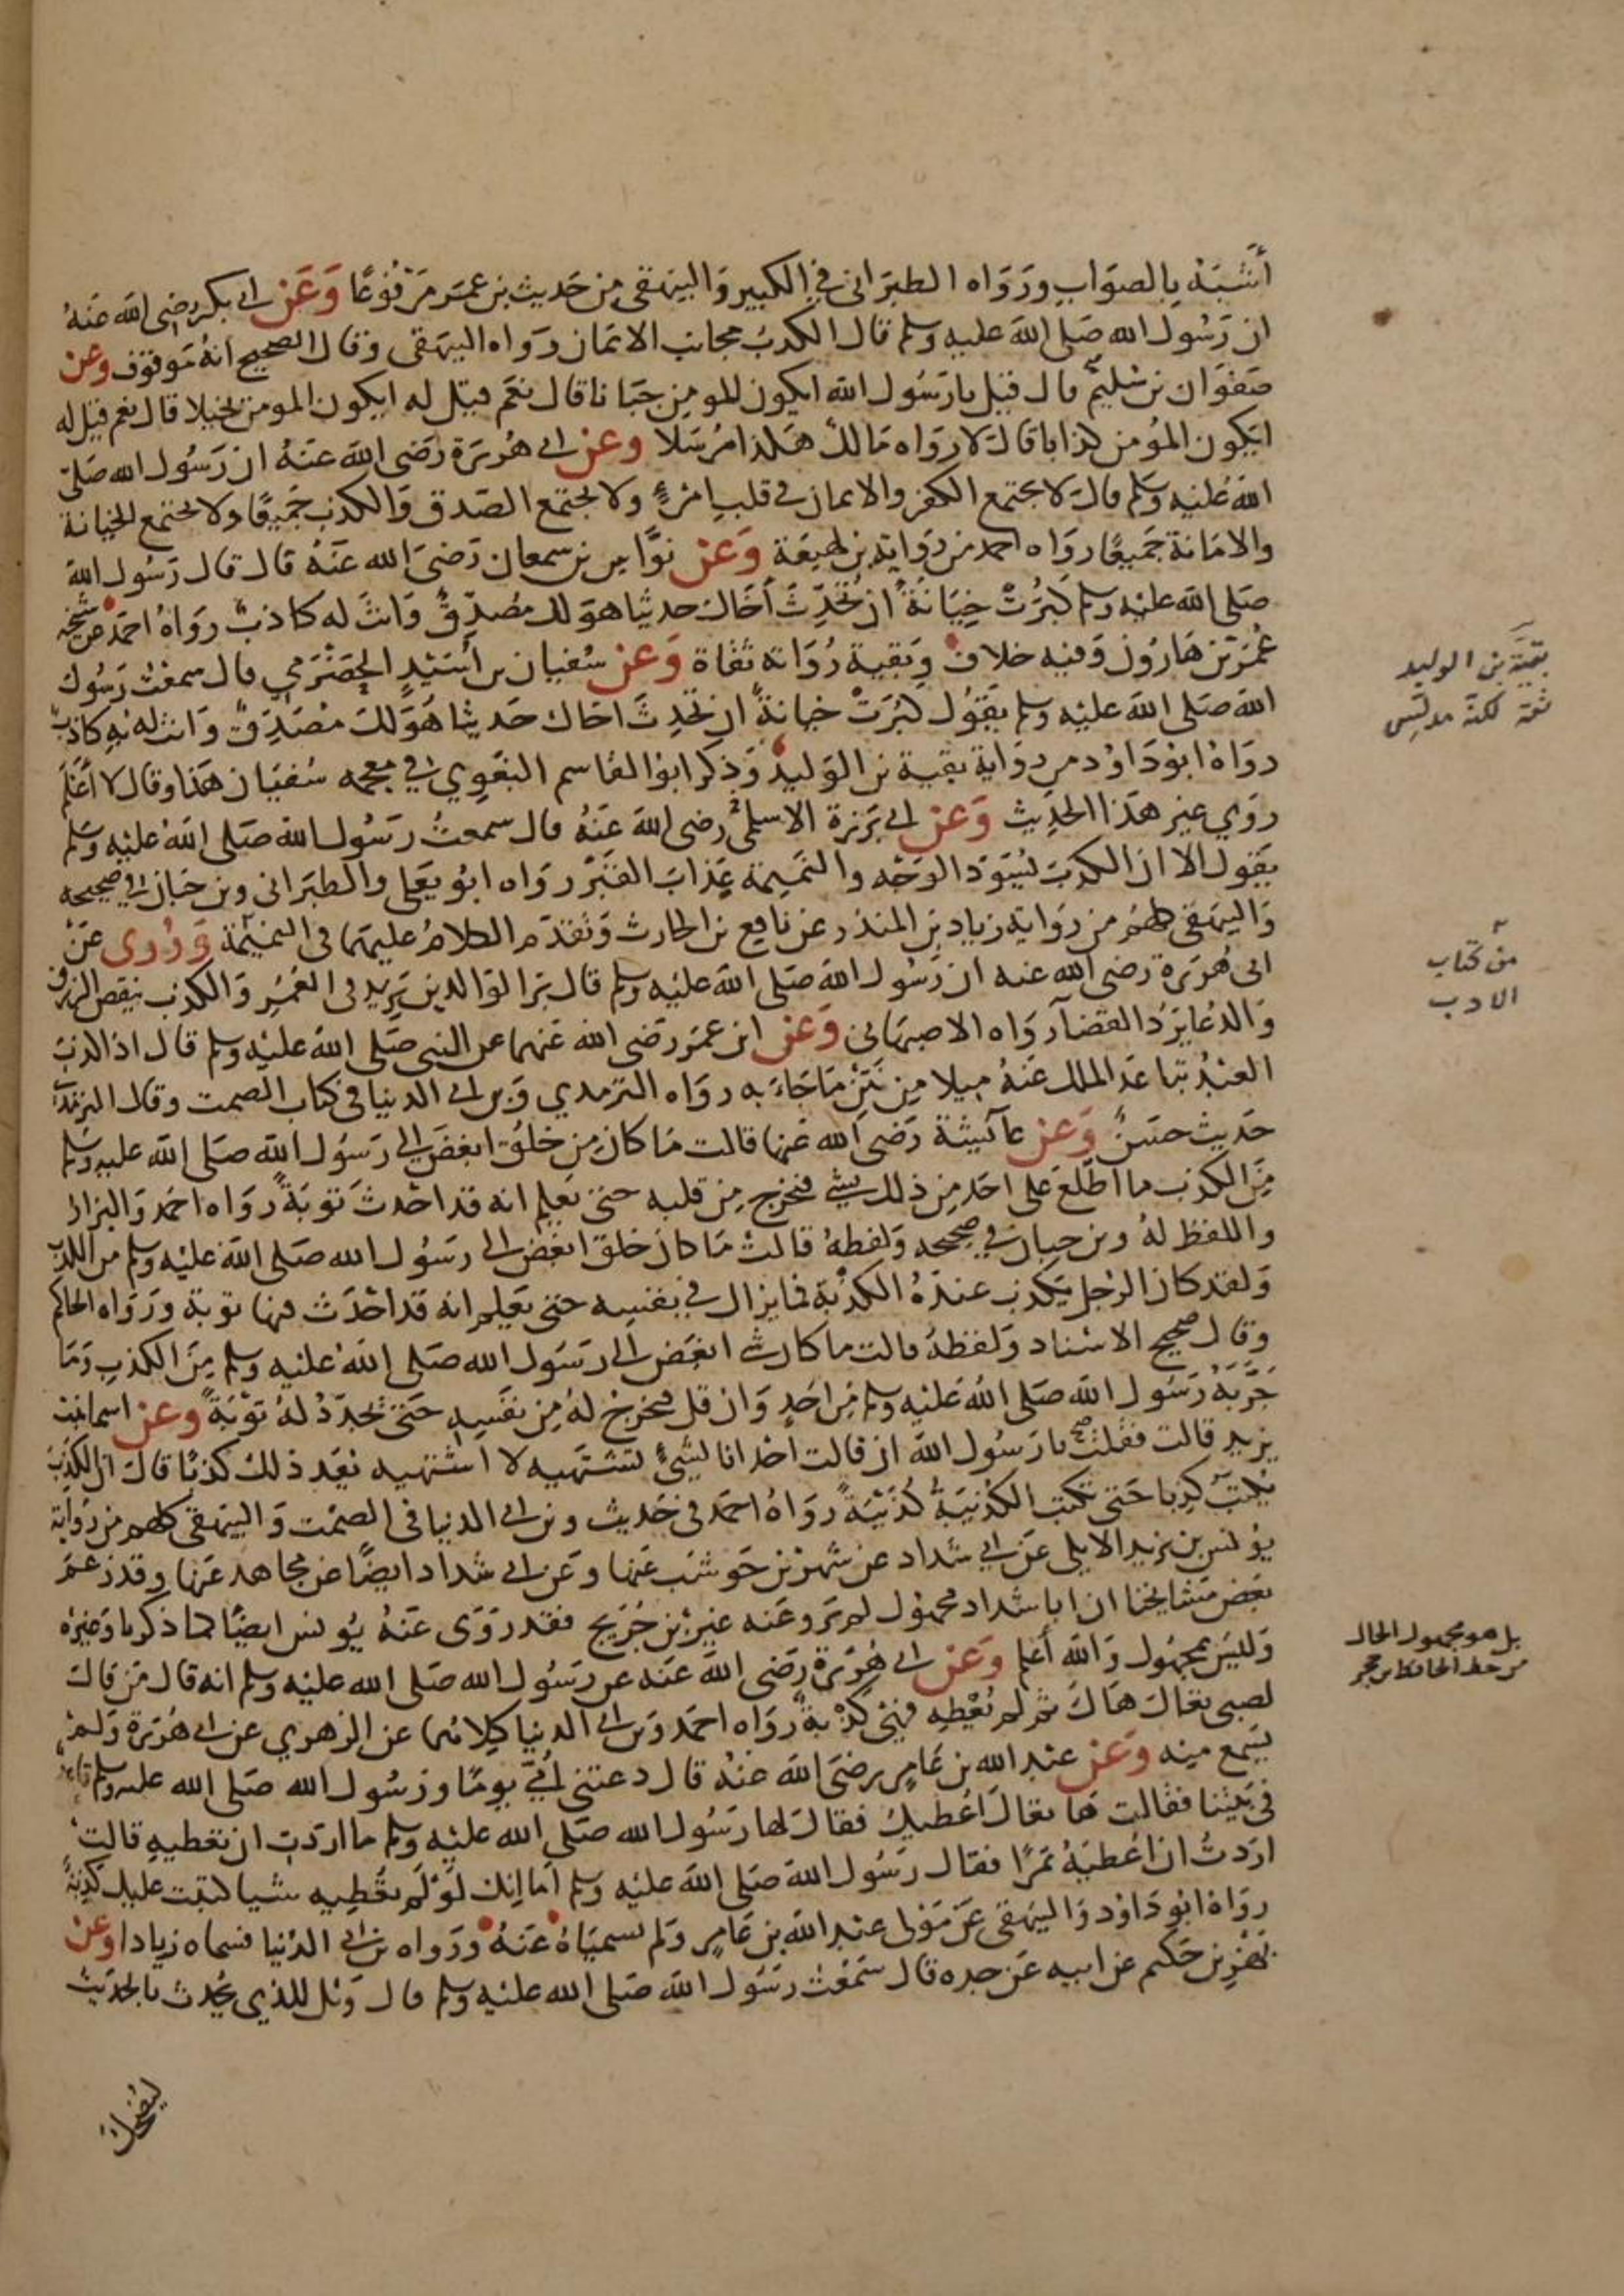 أشبَهُ بالصوَابِ ورَوَاه الطبَراني في الكبير وَالبيهقي من حَديث بن عمَر مَرْفُوعًا وَعَن ابي بكر رضى الله عَنهُ
ان رَسُول الله صَلى الله عليه وسلم قال الكذبُ مجانب الايمان رَواه البيهقى وقال الصحيح انهُ مَوقوف وعن
صَفوَان بن سُليم قال قيل يا رَسُول الله ايكون المومن جَبَانا قال نعَم قيل له ايكون المومن بخيلا قال نعم قيل له
ايَكون المؤمن كذابا قال لا روَاه مَالك هَكذا مُرسَلا وعن ابي هُريرَة رَضى الله عنهُ ان رَسُول الله صَلى
الله عَليه وسَلم قال لا يجتمع الكفر والايمان في قلب امرئٍ ولا يجتمع الصّدق وَالكذب جَميعًا ولا تجتمع الخيانة
والامَانة جَميعًا روَاه احمد من روَاية بن لهيعَة وَعَن نوَّاس بن سمعان رَضىَ الله عَنهُ قال قال رَسُول الله
صَلى الله عليه وسلم كبُرَتْ خِيَانَةً ان تُحَدِّثَ أخَاك حديثا هوَ لك مُصَدِّقٌ وَانتَ له كاذبٌ روَاهُ احمَد عن شيخه
عُمَر بن هَارُون وَفيه خلاف وَبقية رُوَاته ثقاة وَعن سُفيان بن أسَيْدٍ الحَضْرَمي قال سمعتُ رَسُول
الله صَلى الله عليْه وسلم يقوُل كبُرَتْ خيانةً ان تحدِثَ اخاك حَديثا هُوَ لكَ مُصَدِّقٌ وَانت له به كاذب
روَاهُ ابوُ دَاوُد من روَاية بقية بن الوَليد وَذكرَ ابوُ القاسم البغَوِي في معجمه سُفيَان هَذا وقال لا أعْلم
رَوَي غير هَذا الحَدِيث وَعن ابي بَرزة الاسلميّ رضى الله عَنهُ قال سمعتُ رَسُول الله صَلى الله عَليْه وسَلم
يقول الا ان الكذبَ يُسَوّد الوَجْه والنَمِيمة عَذابَ القَبْر روَاه ابوُ يَعلى والطبَراني وبن حبان في صحيحه
وَالبيهقى كلهم من روَاية زياد بن المنذر عن نافع بن الحارث وَتقدّم الكلامُ عليهما في النميمَة وَرُوى عَن
ابى هُريرَة رضى الله عنه ان رَسُول الله صَلى الله عليه وسلم قال برّ الوَالدين يَزيد في العُمُرِ وَالكذب ينقص الرزق
وَالدُعَا يَرُدُ القضآ رَوَاه الاصبهَانى وَعَن ابن عمَر رَضى الله عَنهما عن النبي صَلى الله عليْه وسلم قال اذا كذبَ
العَبْدُ تباعَد الملك عَنْهُ ميلا مِن نَتْنِ مَا جَاءَ به روَاه الترمذي وَبن ابي الدنيا في كتاب الصمت وقال الترمذي
حَديث حسَنٌ وَعن عآئشة رَضىَ الله عَنها قالت مَا كان مِن خلُق ابغضَ الي رَسُول الله صَلى الله عليه وسَلم
مِنَ الكذب ما اطلعَ على احَد مِن ذلك بشئ فيخرج مِن قلبه حتى يَعلم انه قد احْدثَ توبَةً روَاه احمَد وَالبزار
واللفظ لهُ وبن حبان في صحيحه وَلفظهُ قالتْ مَا كان خلق ابغض الى رسُول الله صَلى الله عليْه وسلم من الكذب
وَلقد كان الرَجل يَكذب عندَهُ الكذبَة فما يزال في نفسِه حتى يَعلم انه قد احْدَث منها توبة ورَوَاه الحاكم
وقال صحيح الاسْناد وَلفظهُ قالت ما كان شي ابغَض الى رسَول الله صَلى الله عليه وسلم مِنَ الكذب وَمَا
جَرّبَهُ رَسُول الله صَلى الله عَليْه وسلم مِن احَدٍ وَان قل فيخرج لهُ مِن نفسِه حَتى يجَدّدُ لهُ توْبَةً وعن اسمآ بنت
يزيد قالت فقلتُ يا رَسُول الله ان قالت احْدانا لشئٍ تشتهيه لا اشتهيه يعَد ذلك كذبًا قال ان الكذبَ
يكتبُ كذبا حَتى تكتب الكذيبَةُ كُذيبَةً روَاهُ احمَد في حَديث وبن ابي الدنيا في الصمْت وَالبيهقى كلهم من روَاية
يوُنس بن يَزيد الايلي عَن ابي شداد عن شهر بن حَوشَب عَنها وَعَن ابي شداد ايضًا عن مجاهد عَنها وقد زعَمَ
بعَض مشايخنا ان ابا شداد مجهوُل لم يَرو عَنه غير بن جُرَيج فقد رَوَى عَنهُ يُونس ايضًا كما ذكرنا وَغيره
وَليسَ بمجهوُل وَالله أعلم وَعَن ابي هُريَرة رَضى الله عَنه عن رسُول الله صَلى الله عليه وسلم انه قال مَن قال
لصبى تعَال هَاكَ ثم لم يُعْطِه فهِىَ كذْبةٌ روَاه احمَد وَبن ابي الدنيا كِلاهما عن الزهري عن ابي هُريَرة وَلم
يَسْمع مِنه وَعَن عَبد الله بن عَامِر رضىَ الله عَنهُ قال دعتنى أُمّي يَومًا ورسُول الله صَلى الله عليه وسلم قاعد
في بَيتنا فقالت هَا تعَالَ اُعْطيك فقال لها رَسُول الله صَلى الله عليْه وسلم ما ارَدتِ ان تعْطيهِ قالت
ارَدتُ ان اعْطيَهُ تمَرًا فقال رَسُول الله صَلى الله عليْه وسلم أمَا إنك لوْ لم تعْطِيه شيا كتبَت عليك كذبةً
روَاهُ ابوُ دَاوُد وَالبيهقى عَن مَوْلى عبد الله بن عَامِر وَلم يسميَاهُ عَنهُ ورَواه بن ابي الدُنيا فسماه زيادا وعن
بَهْز بن حَكيم عن ابيه عَن جده قال سَمعْتُ رسَوُل الله صَلى الله عليْه وسلم قال وَيْل للذي يحَدث بالحديث
ليضحك
بقيَّة بن الوليد
ثقة لكنه مدلس
من كتاب
الادب
بل هو مجهول الحال
من خط الحافظ بن حجر